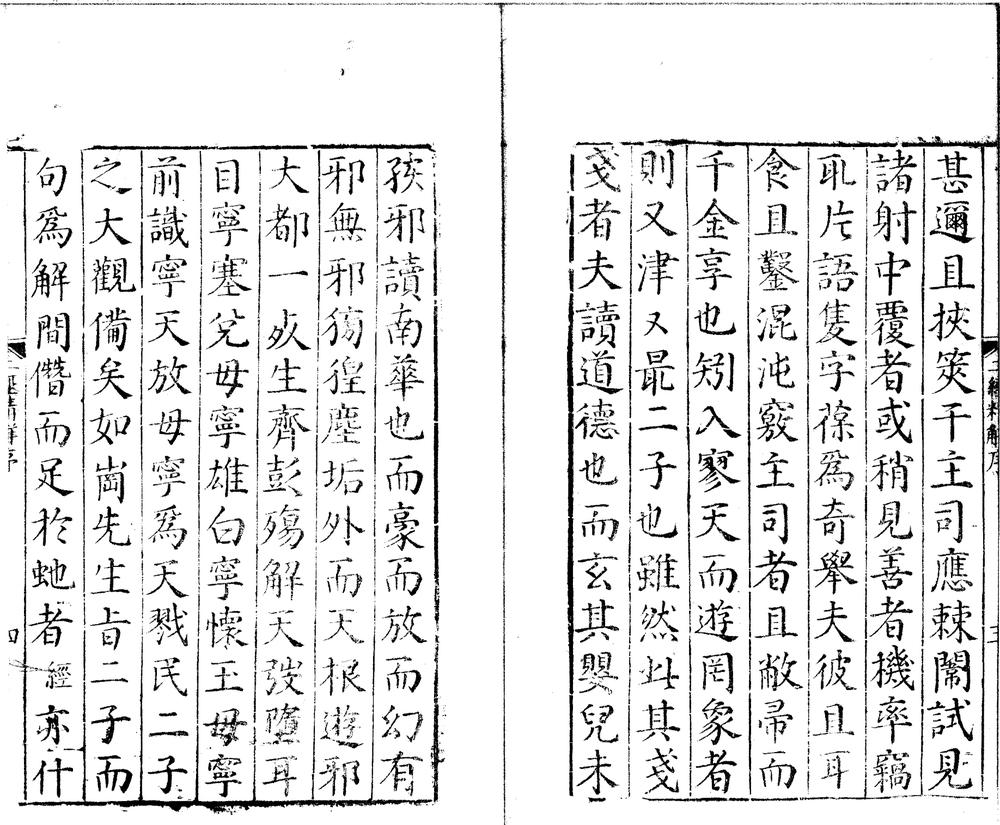 甚邇且挾筴干主司應棘闈試見
諸射中覆者或稍見善者機率竊
耴片語隻字葆爲奇舉夫彼且耳
食且鑿混沌竅主司者且敝帚而
千金享也矧入寥天而遊罔象者
則又津又最二子也雖然此其戔
戔者夫讀道德也而玄其嬰兒未
孩邪讀南華也而豪而放而幻有
邪無邪徬徨塵垢外而天根遊邪
大都一死生齊彭殤解天弢墮耳
目寧塞兌毋寧雄白寧懷玉毋寧
前識寧天放毋寧爲天戮民二子
之大觀備矣如崗先生旨二子而
句爲解間僭而足於虵者經亦什
二經精解序
三
四